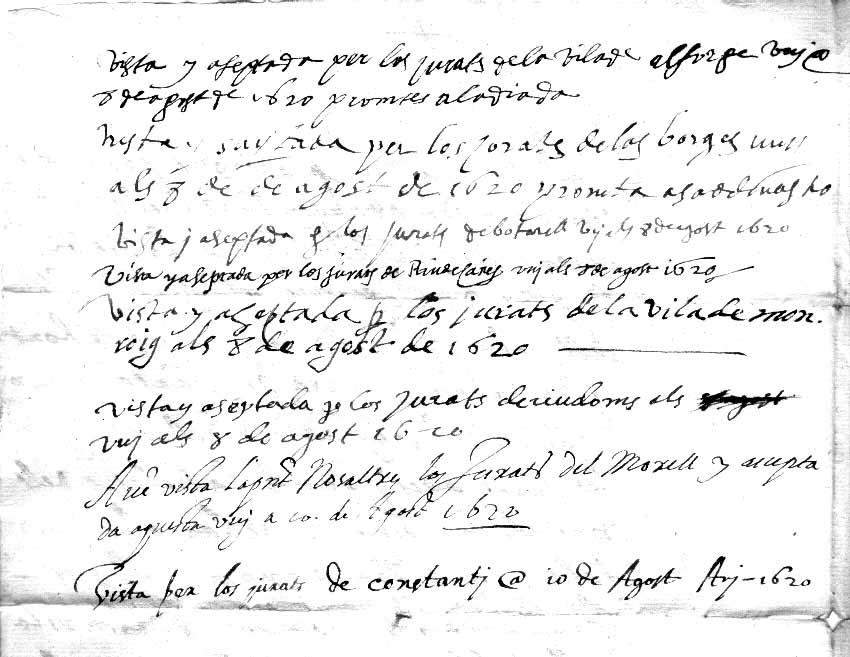 vista y aseptada per los jurats de la vila de alforge vuy a
8 de agost de 1620 promtes a la diada
vista y per los jorats de las borges vuy
als 8 de de agost de 1620 y
vista j aseptada p los jurats de botarell vuj als 8 de agost 1620
vista y aseptada per los jurats de Riudecañes vuj als 8 de agost 1620
vista y aseptada p los jurats de la vila de mon
roig als 8 de agost de 1620
vista y aseptada p los jurats de riudoms als
vuj als 8 de agost 1620
Avē vista la pnt Nosaltrs los Jurats del Morell y acupta
da aquesta vuj a 10 de Agost 1620
Vista per los jurats de constantj @ 10 de Agost Auj - 1620